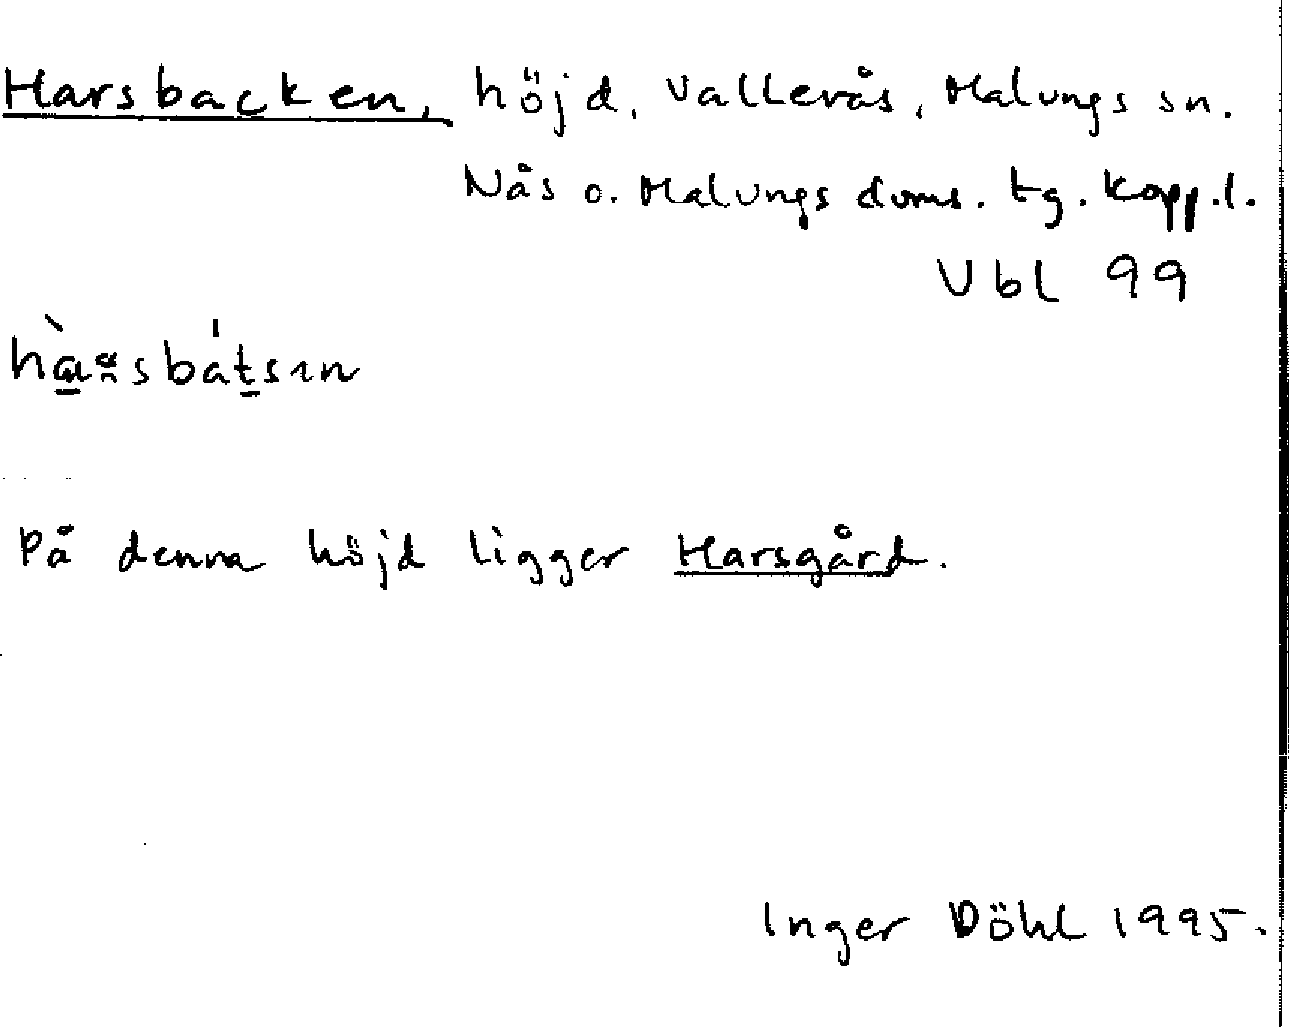 Harsbacken, höjd, Vallerås, Malungs sn.
Nås o. Malungs doms. tg. Kopp. l.
Ubl 99
På denna höjd ligger Harsgård.
Inger Döhl 1995.